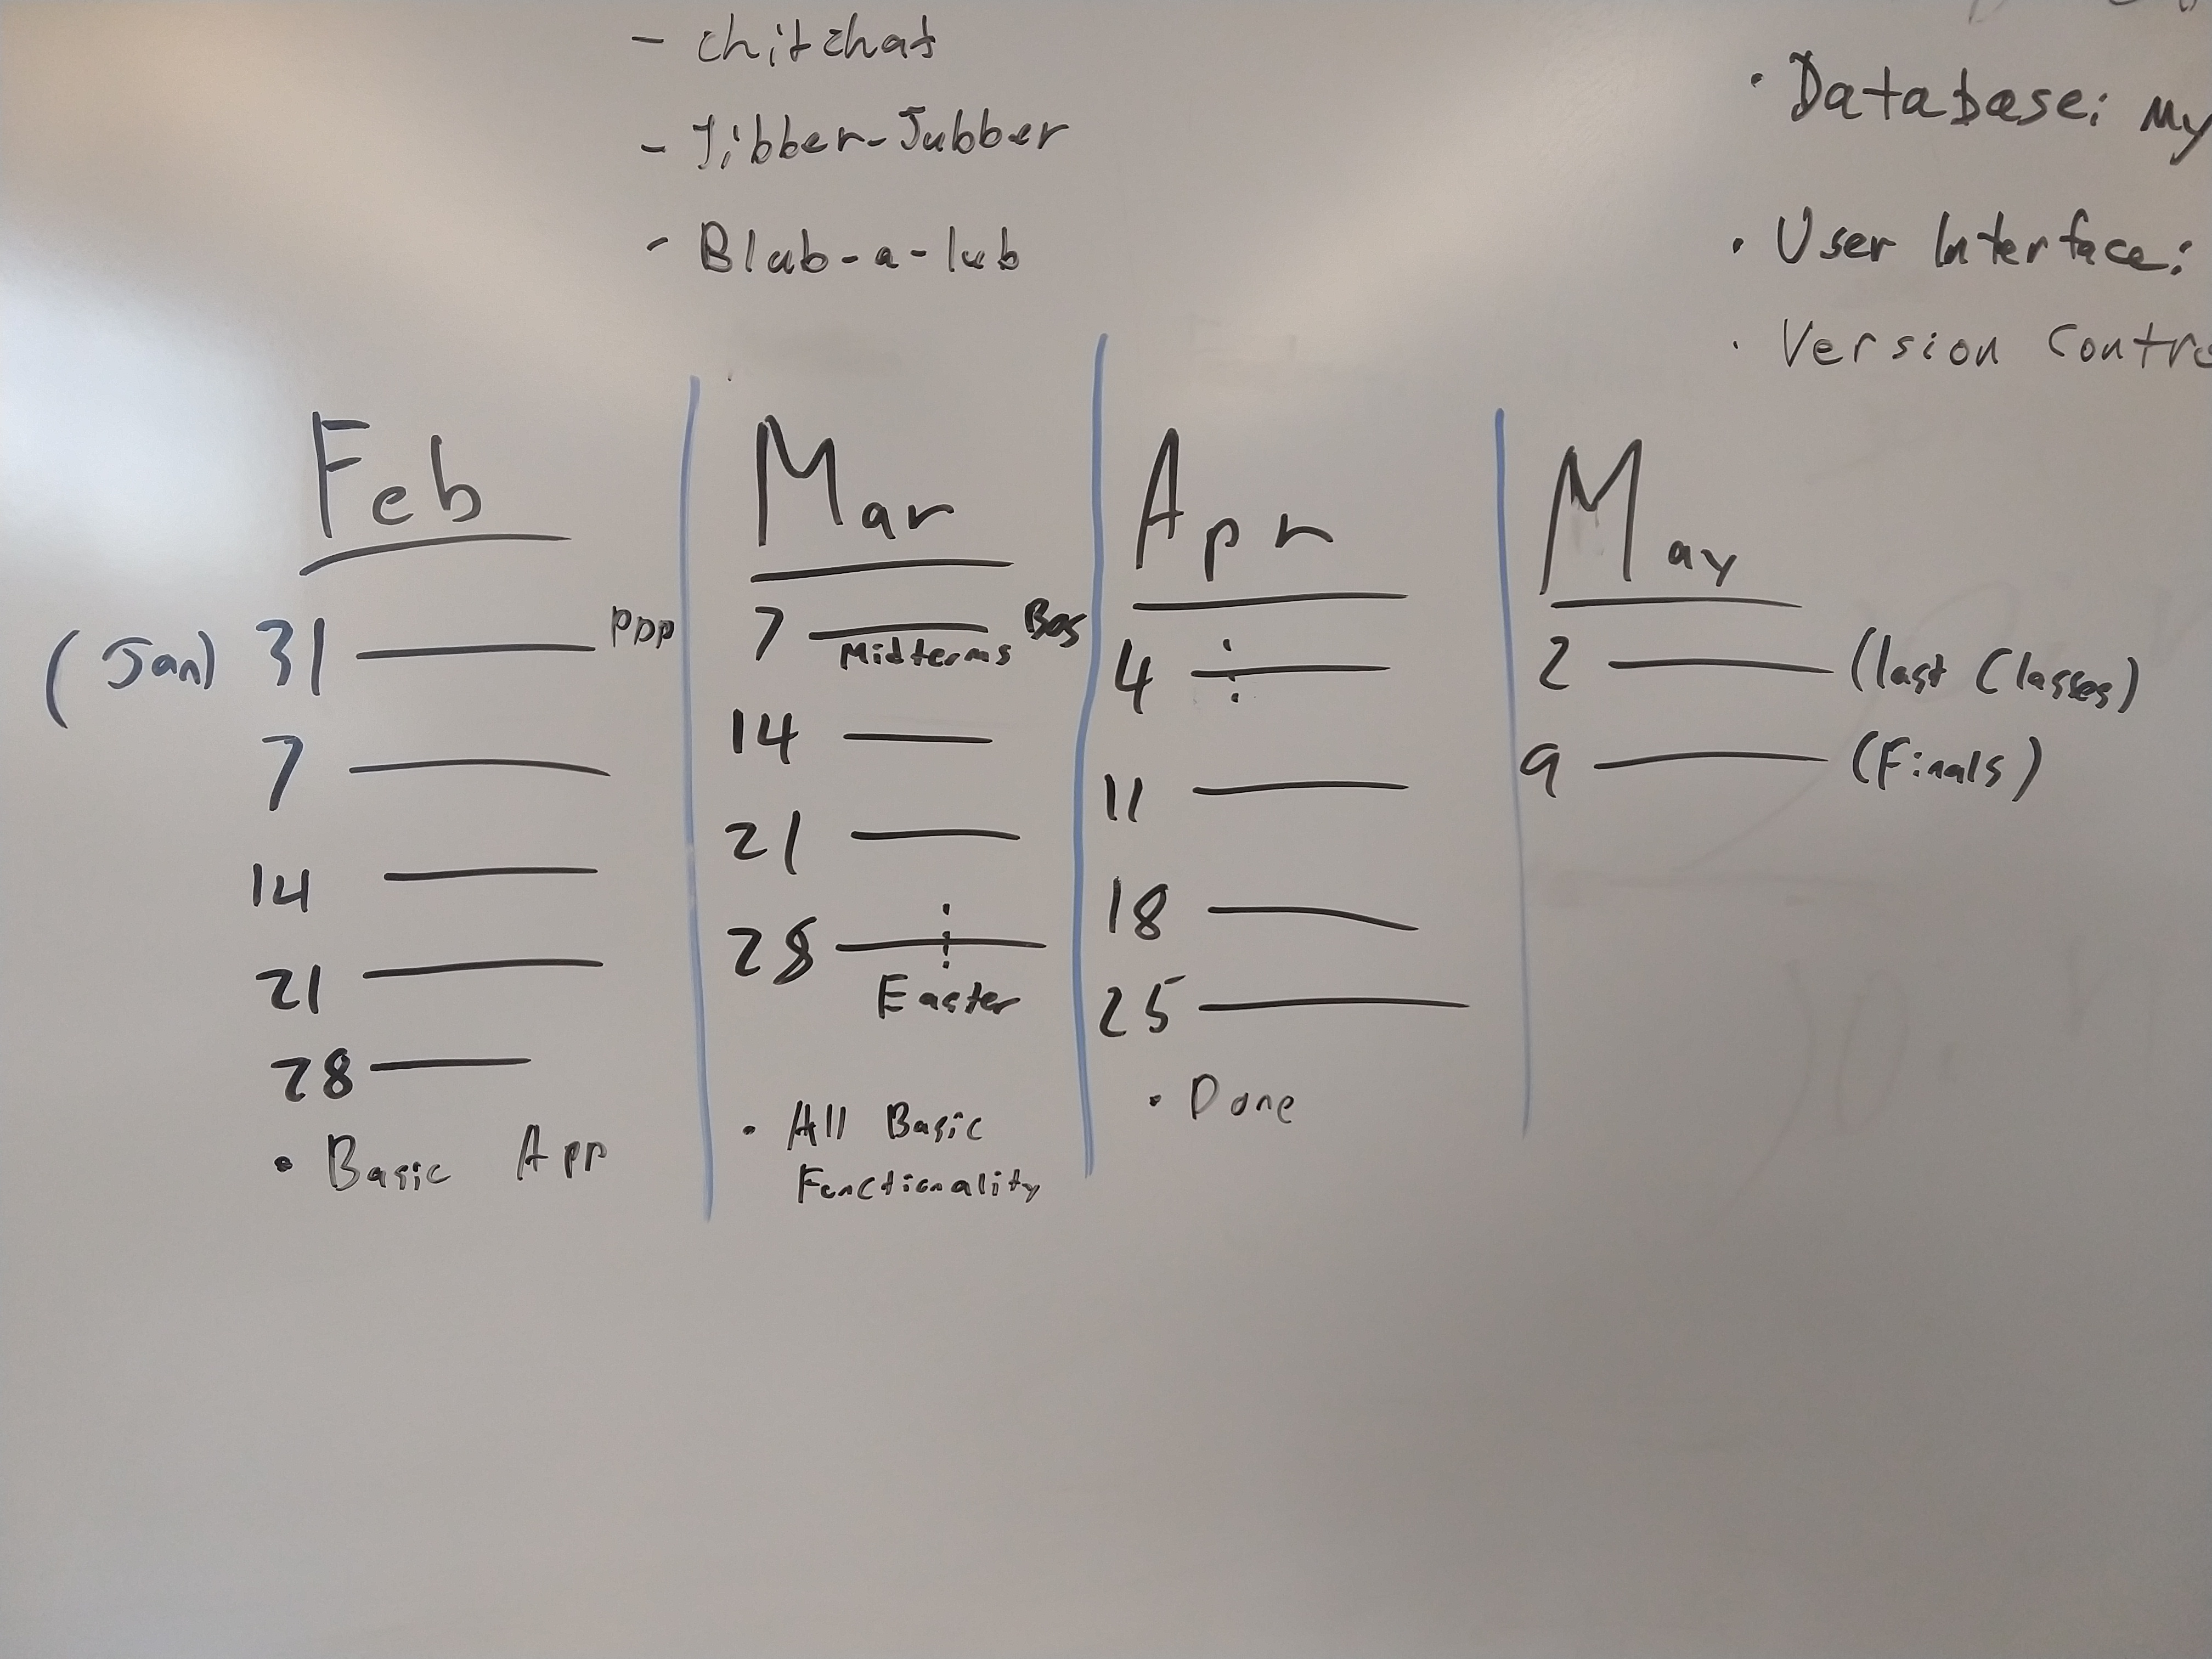 - chitchat
- Jibber-Jubber
- Blab-a-lub
• Database: My
• User Interface:
• Version Contro
Feb
(Jan) 31 PDP
7
14
21
28
• Basic App
Mar
7 Bos
Midterms
14
21
28
Easter
• All Basic
Functionality
Apr
4
11
18
25
• Done
May
2 (last Classes)
9 (Finals)